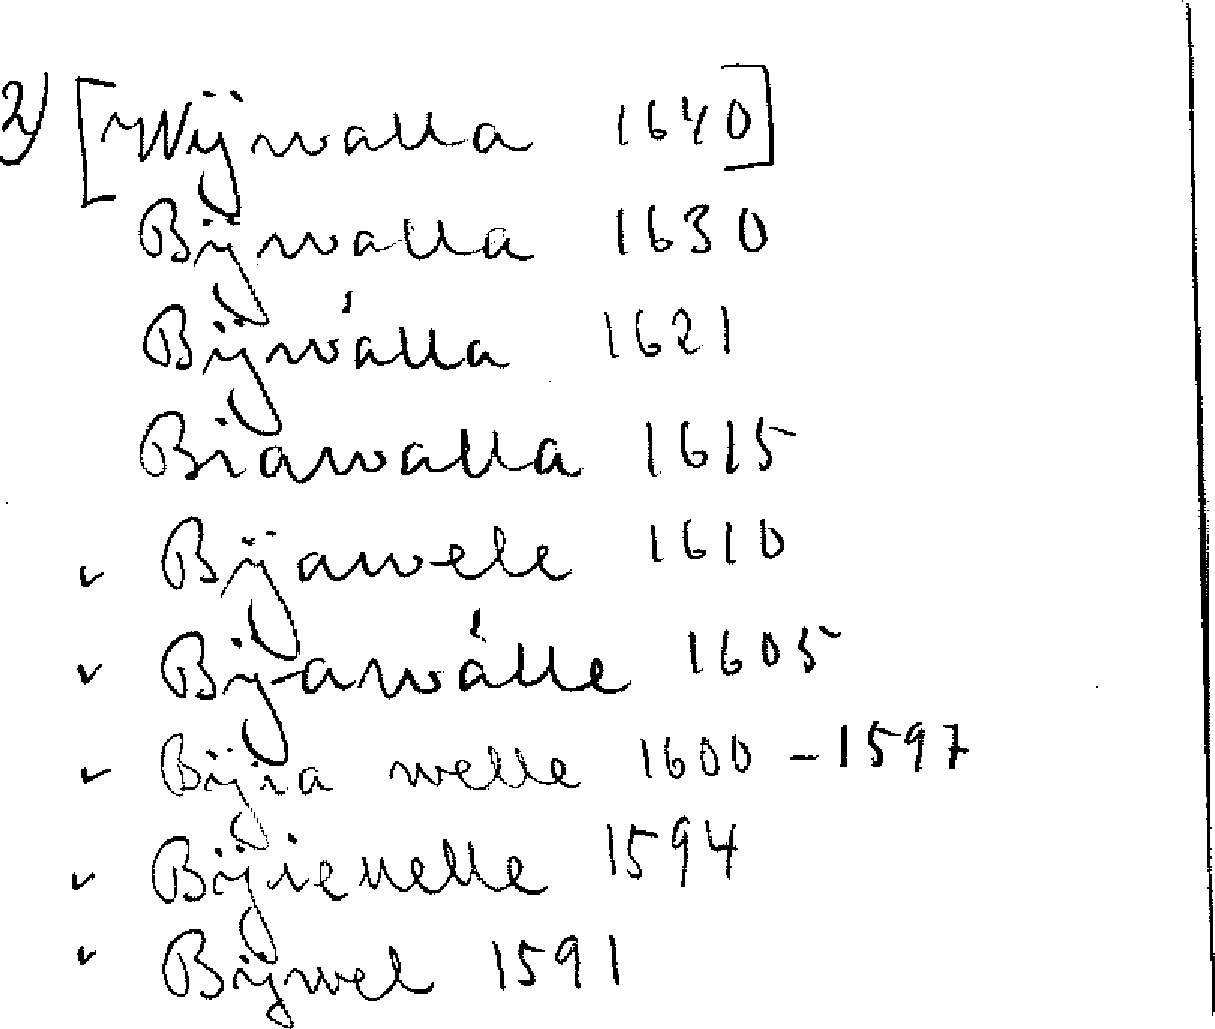 2) [Wijwalla 1640]
Bijwalla 1630
Bijwálla 1621
Biawalla 1615
v Bijawele 1610
v Bij-awálle 1605
v Bijia welle 1600 - 1597
v Bijieuelle 1594
v Bijwel 1591